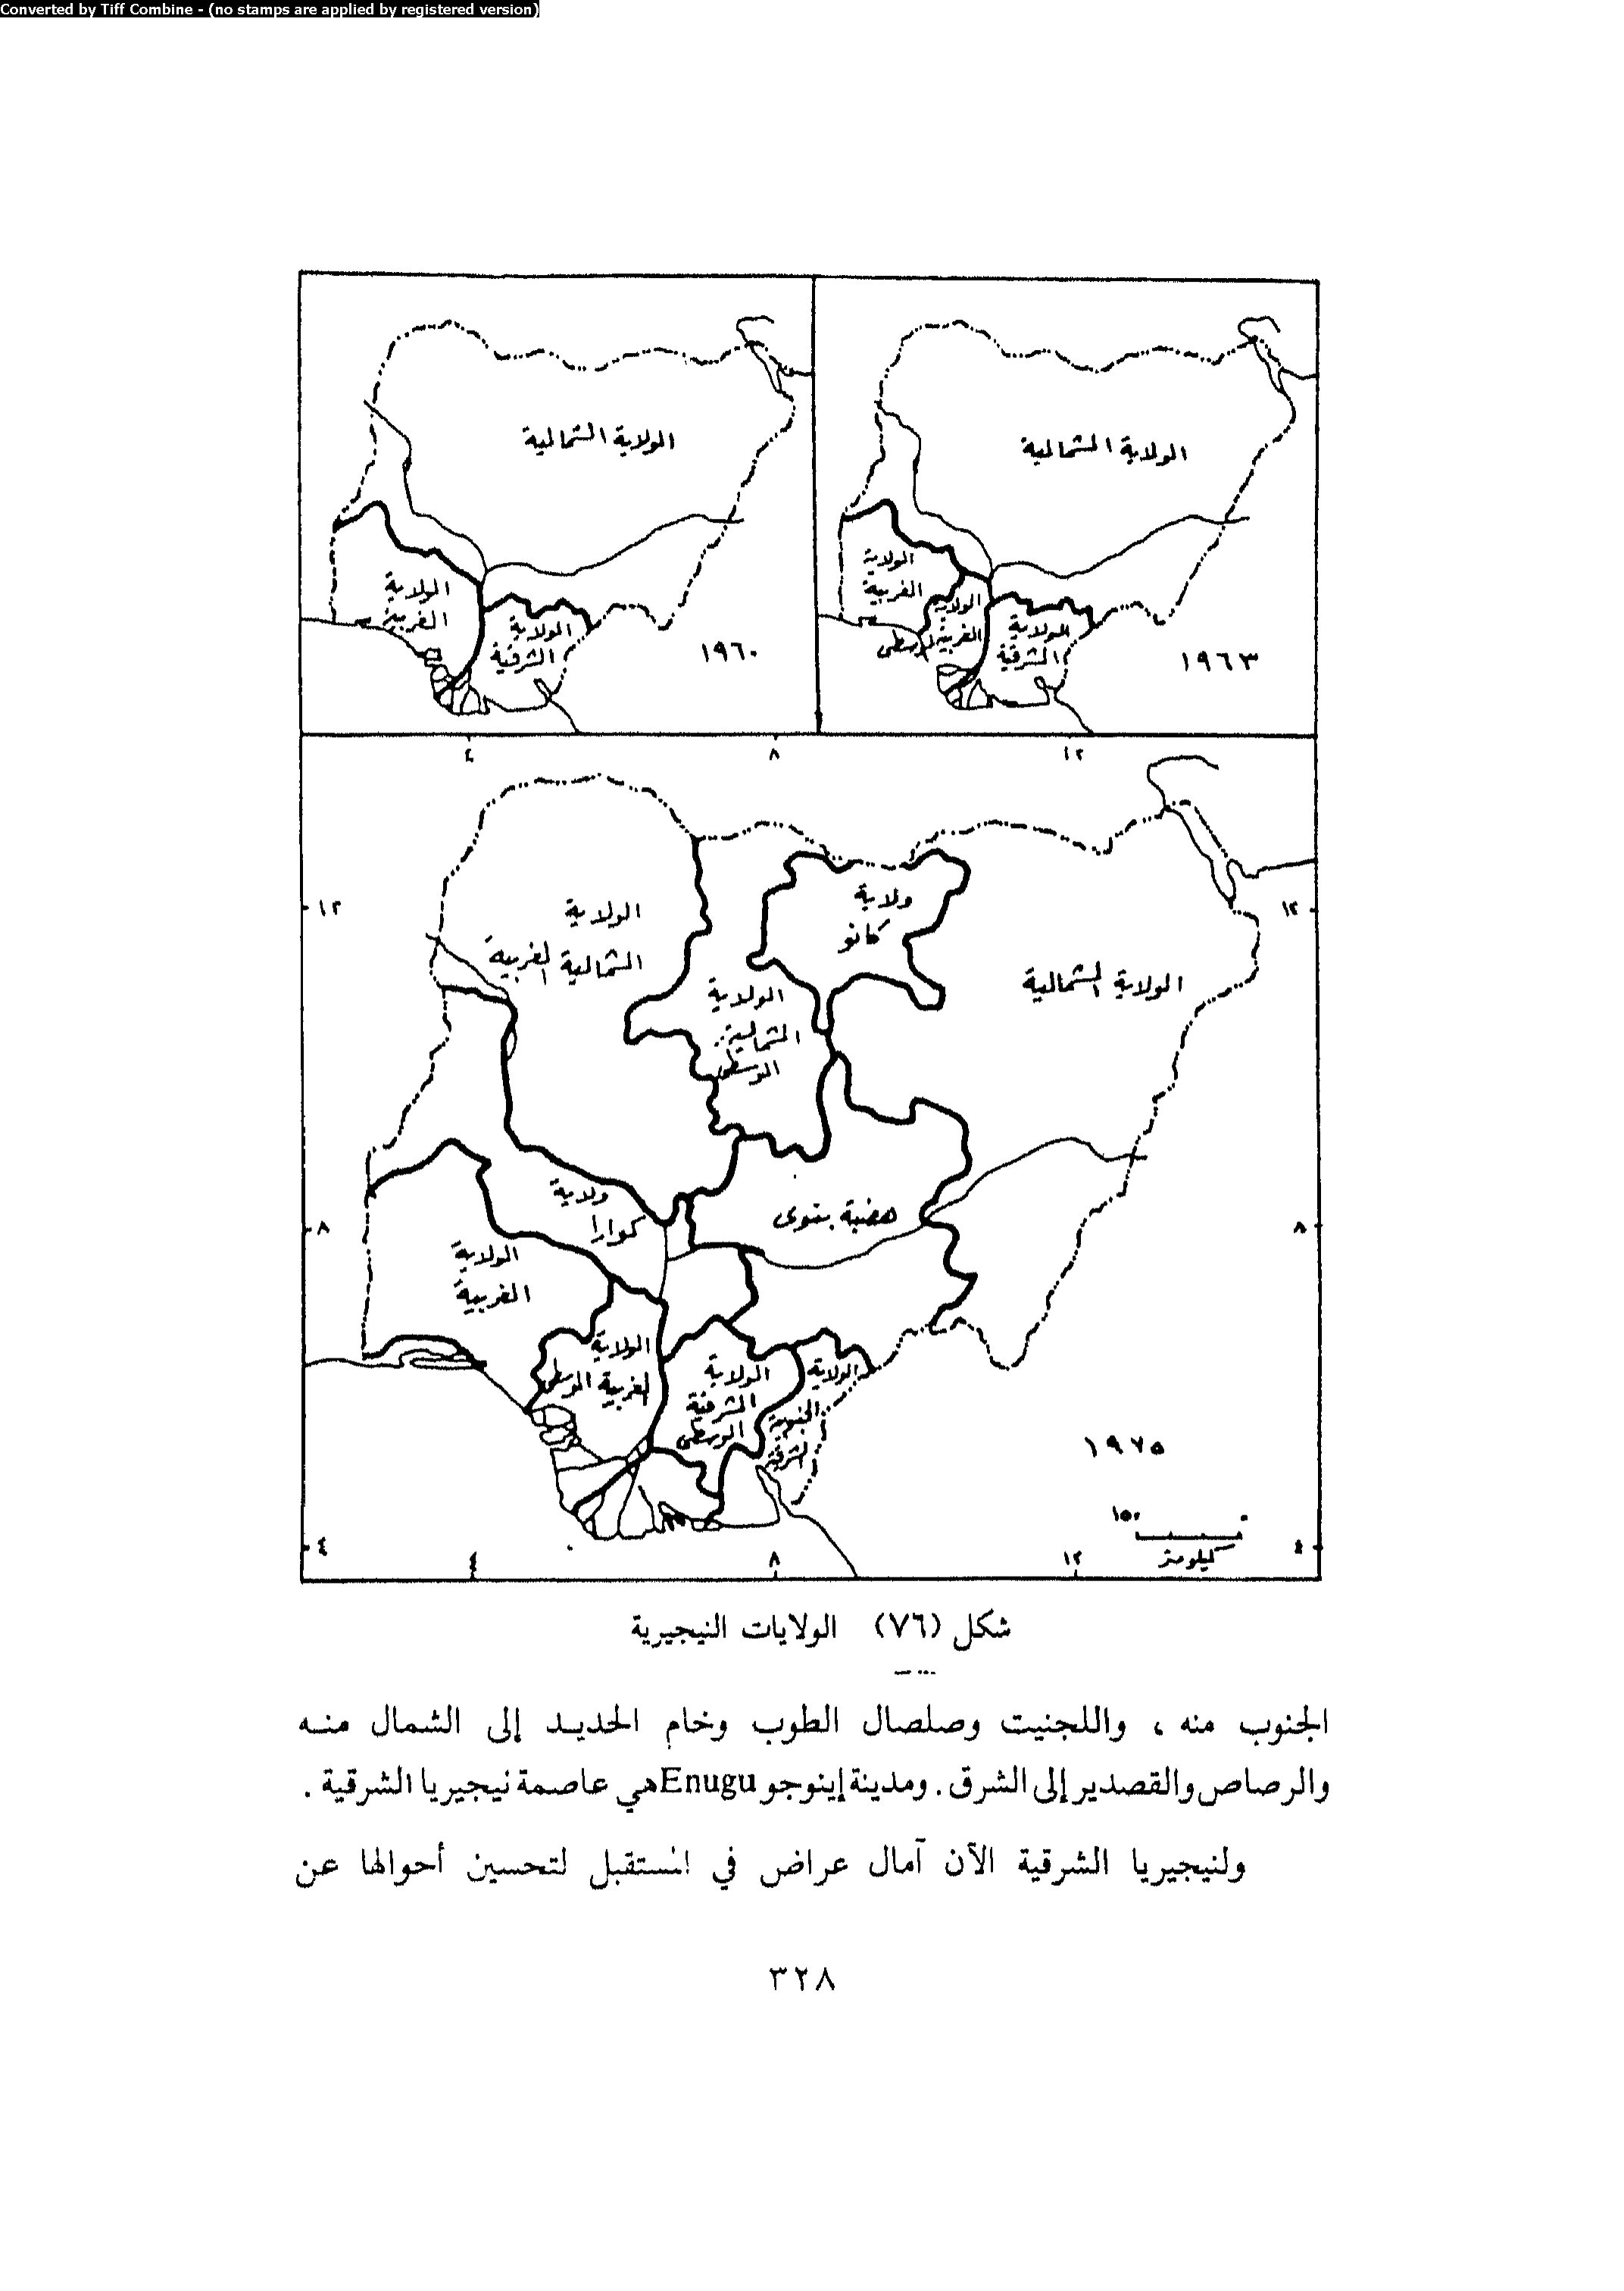 Converted by Tiff Combine - (no stamps are applied by registered version)
الولاية الشمالية
الولاية
الغربية
الولاية
الشرقية
١٩٦٠
الولاية الشمالية
الولاية
الغربية
الولاية
الغربية الوسطى
الولاية
الشرقية
١٩٦٣
٤ ٨ ١٢
١٢ ١٢
ولاية
كانو
الولاية
الشمالية الغربية
الولاية الشمالية
الولاية
الشمالية
الوسطى
ولاية
كوارا
هضبة بنوى
٨ ٨
الولاية
الغربية
الولاية
الغربية الوسطى
الولاية
الشرقية
الوسطى
الولاية
الجنوبية
الشرقية
١٩٧٥
١٥٠ ٠
كيلومتر
٤ ٤
٤ ٨ ١٢
شكل (٧٦) الولايات النيجيرية
الجنوب منه ، واللجنيت وصلصال الطوب وخام الحديد إلى الشمال منه
والرصاص والقصدير إلى الشرق . ومدينة إينوجو Enugu هي عاصمة نيجيريا الشرقية .
ولنيجيريا الشرقية الآن آمال عراض في المستقبل لتحسين أحوالها عن
٣٢٨